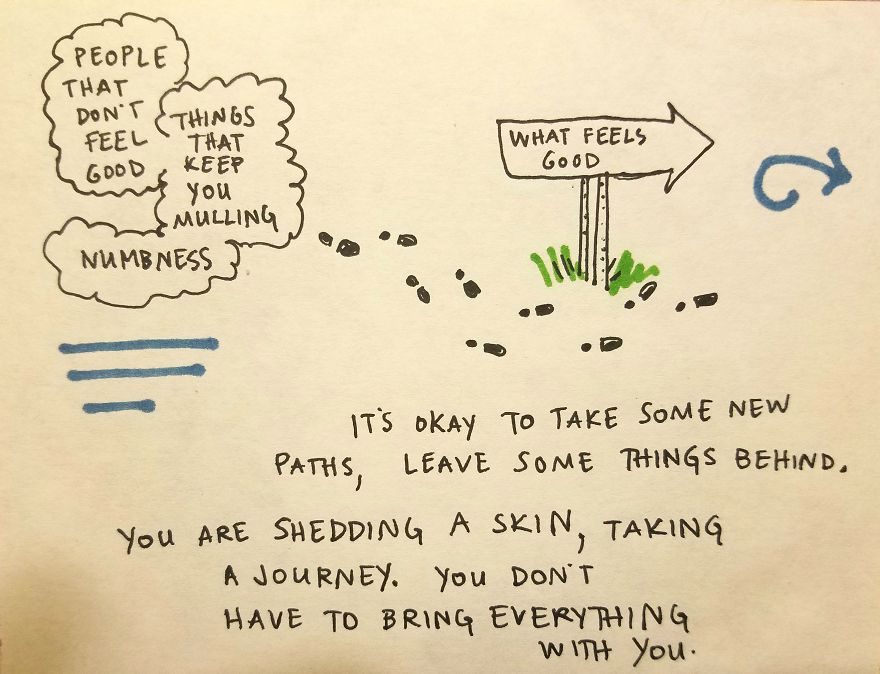 PEOPLE
THAT
DON'T
FEEL
GOOD
THINGS
THAT
KEEP
YOU
MULLING
NUMBNESS
WHAT FEELS
GOOD
IT'S OKAY TO TAKE SOME NEW
PATHS, LEAVE SOME THINGS BEHIND.
YOU ARE SHEDDING A SKIN, TAKING
A JOURNEY. YOU DON'T
HAVE TO BRING EVERYTHING
WITH YOU.